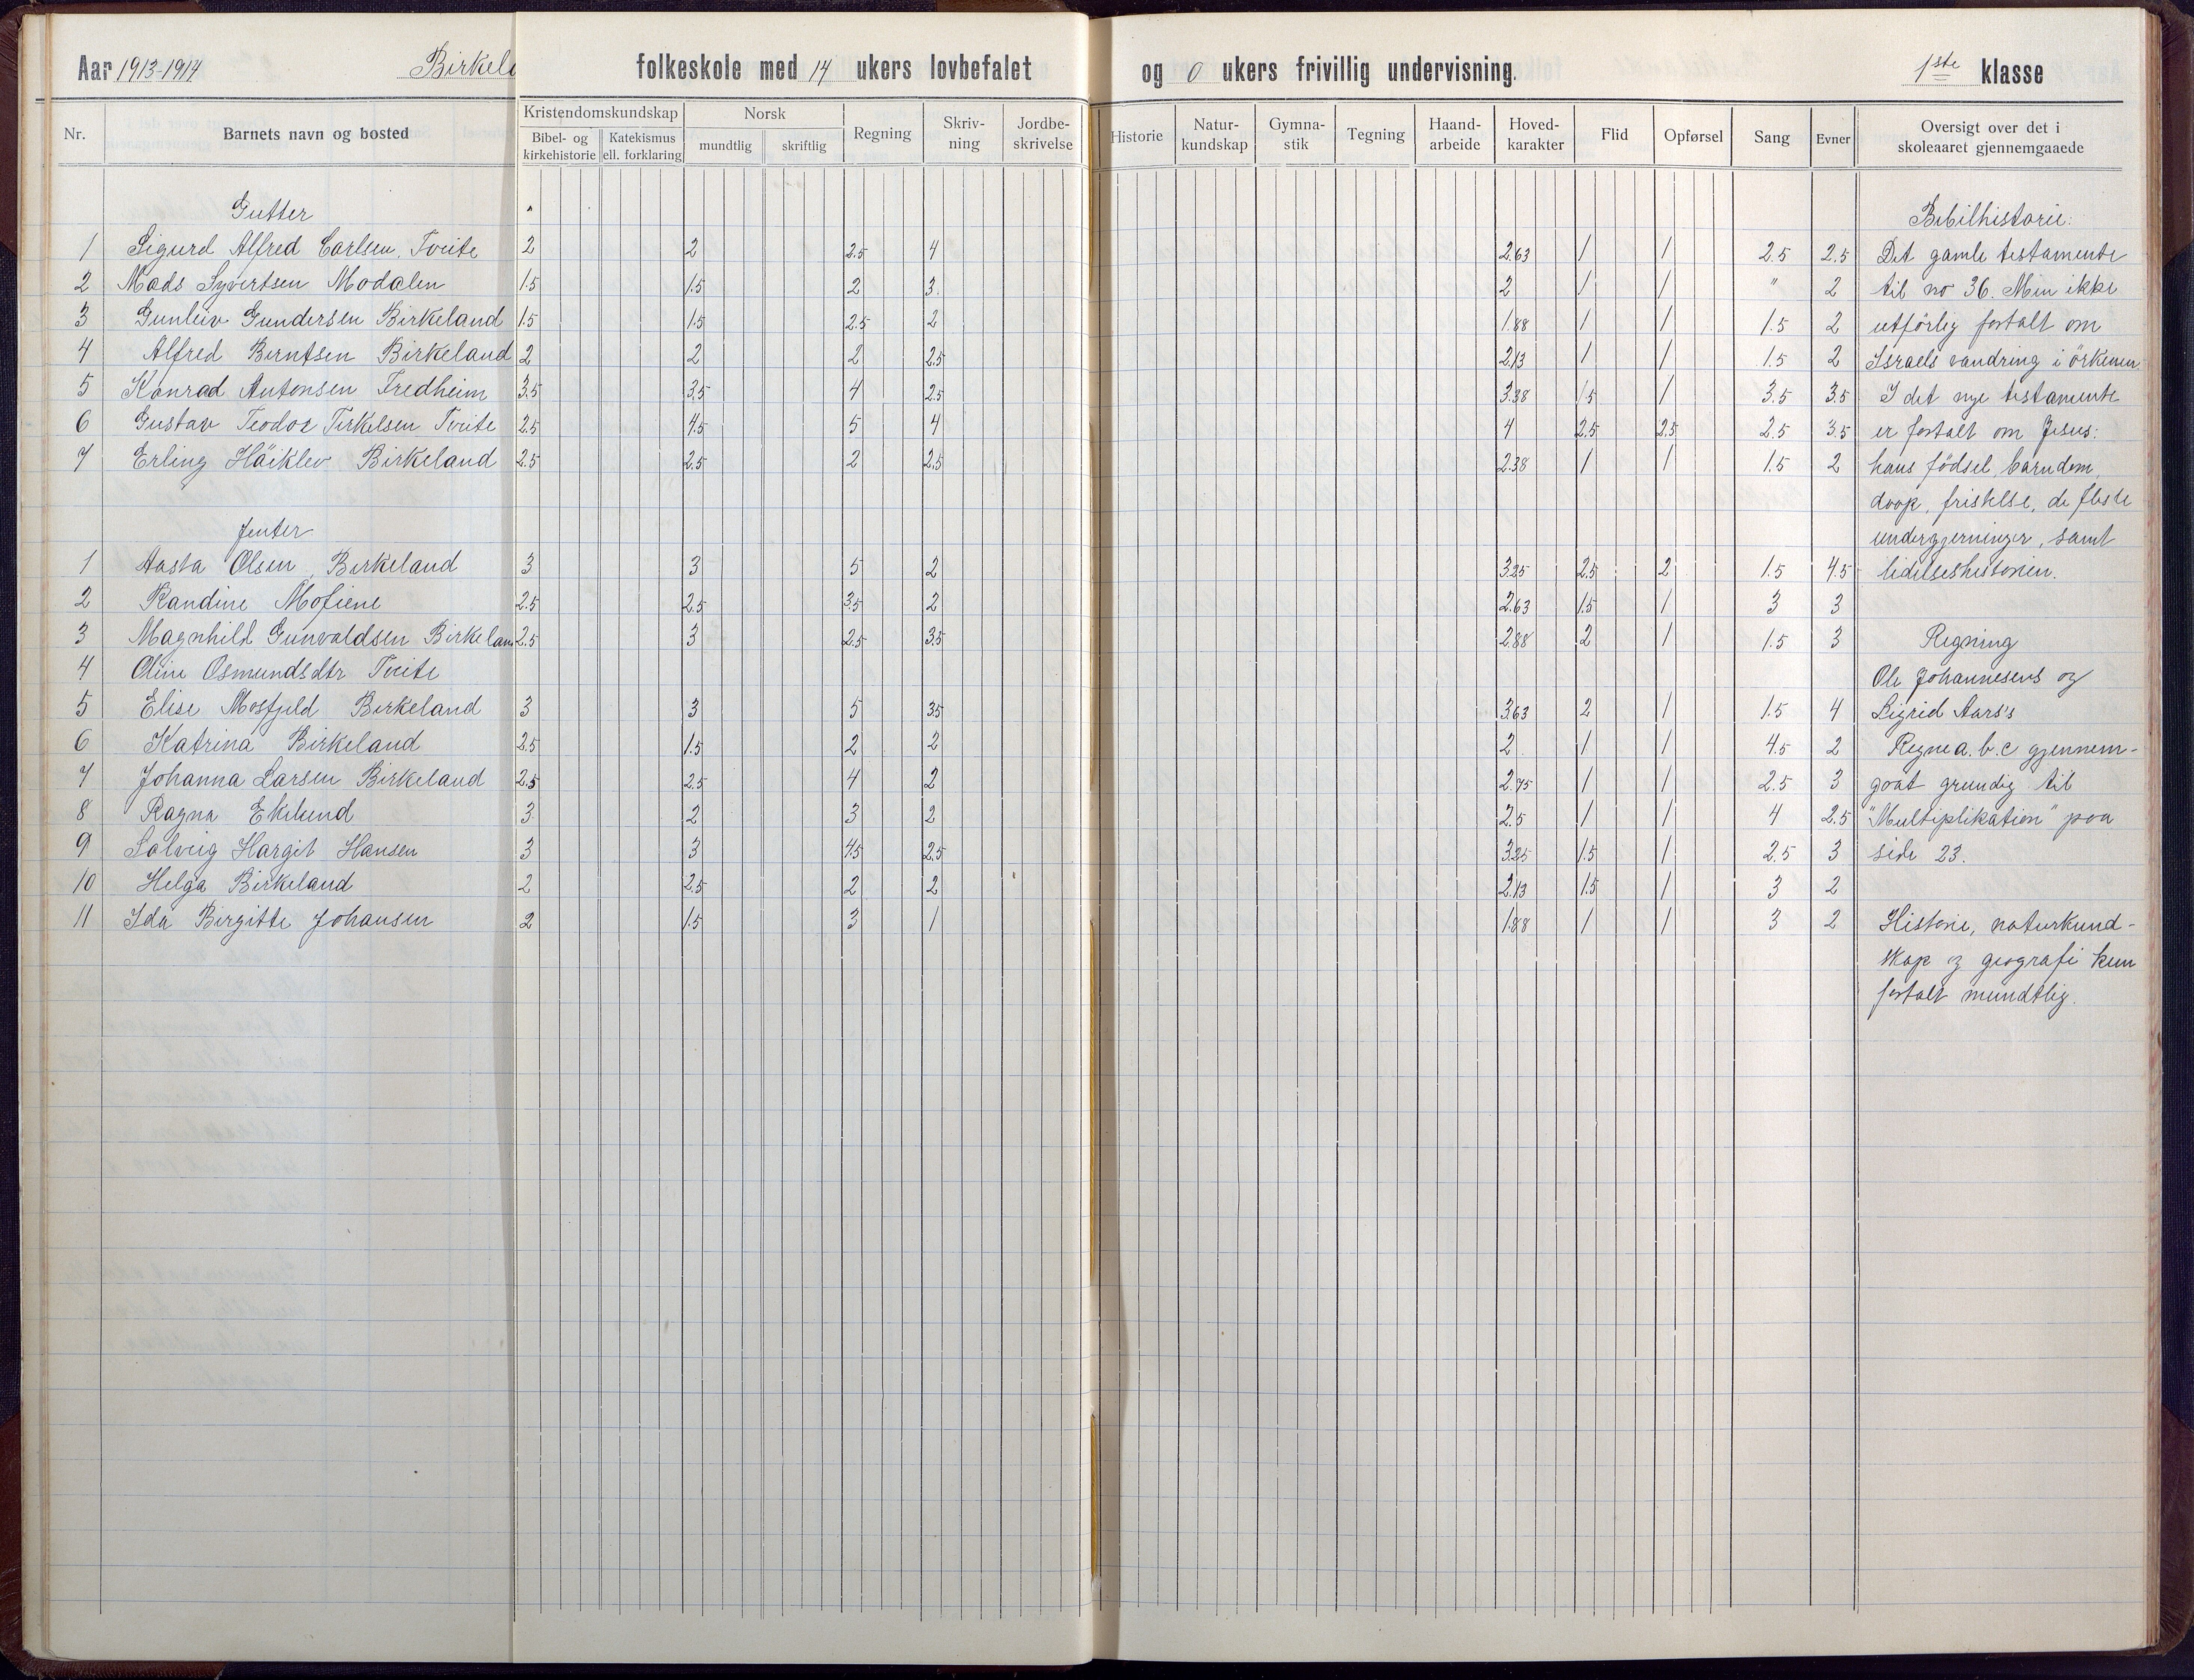 Aar 1913-1914 Birkela folkeskole med 14 ukers lovbefalet og 0 ukers frivillig undervisning. 1ste klasse
Nr. Barnets navn og bosted Kristendomskundskap Bibel- og kirkehistorie Katekismus ell. forklaring Norsk mundtlig skriftlig Regning Skriv-ning Jordbe-skrivelse Historie Natur-kundskap Gymna-stik Tegning Haand-arbeide Hoved-karakter Flid Opførsel Sang Evner Oversigt over det i skoleaaret gjennemgaaede
Gutter Bibilhistorie:
1 Sigurd Alfred Carlsen, Tveite 2 2 2.5 4 2.63 1 1 2.5 2.5 Det gamle testamente
2 Mads Syvertsen Modalen 1.5 1.5 2 3. 2 1 1 " 2 til no 36. Men ikke
3 Gunleiv Gundersen Birkeland 1.5 1.5 2.5 2 1.88 1 1 1.5 2 utförlig fortalt om
4 Alfred Berntsen Birkeland 2 2 2 2.5 2.13 1 1 1.5 2 Israels vandring i örkenen.
5 Konrad Antonsen Fredheim 3.5 3.5 4 2.5 3.38 1.5 1 3.5 3.5 I det nye testamente
6 Gustav Teodor Terkelsen Tveite 2.5 4.5 5 4 4 2.5 2.5 2.5 3.5 er fortalt om Jesus:
7 Erling Häiklev Birkeland 2.5 2.5 2 2.5 2.38 1 1 1.5 2 hans födsel, barndom,
daap, fristelse, de fleste
Jenter undergjerninger, samt
1 Aasta Olsen, Birkeland 3 3 5 2 3.25 2.5 2 1.5 4.5 lidelseshistorien.
2 Randine Mofiene 2.5 2.5 3.5 2 2.63 1.5 1 3 3
3 Magnhild Gunvaldsen Birkeland 2.5 3 2.5 3.5 2.88 2 1 1.5 3 Regning
4 Oline Osmundsdtr Tveite Ole Johannesens og
5 Elise Mosfjeld Birkeland 3 3 5 3.5 3.63 2 1 1.5 4 Sigrid Aars's
6 Katrina Birkeland 2.5 1.5 2 2 2 1 1 4.5 2 Regne a. b. c gjennem-
7 Johanna Larsen Birkeland 2.5 2.5 4 2 2.75 1 1 2.5 3 gaat grundig til
8 Ragna Eklund 3 2 3 2 2.5 1 1 4 2.5 "Multiplikation" paa
9 Solveig Hargit Hansen 3 3 4.5 2.5 3.25 1.5 1 2.5 3 side 23.
10 Helga Birkeland 2 2.5 2 2 2.13 1.5 1 3 2
11 Ida Birgitte Johansen 2 1.5 3 1 1.88 1 1 3 2 Historie, naturkund-
skap og geografi kun
fortalt mundtlig.